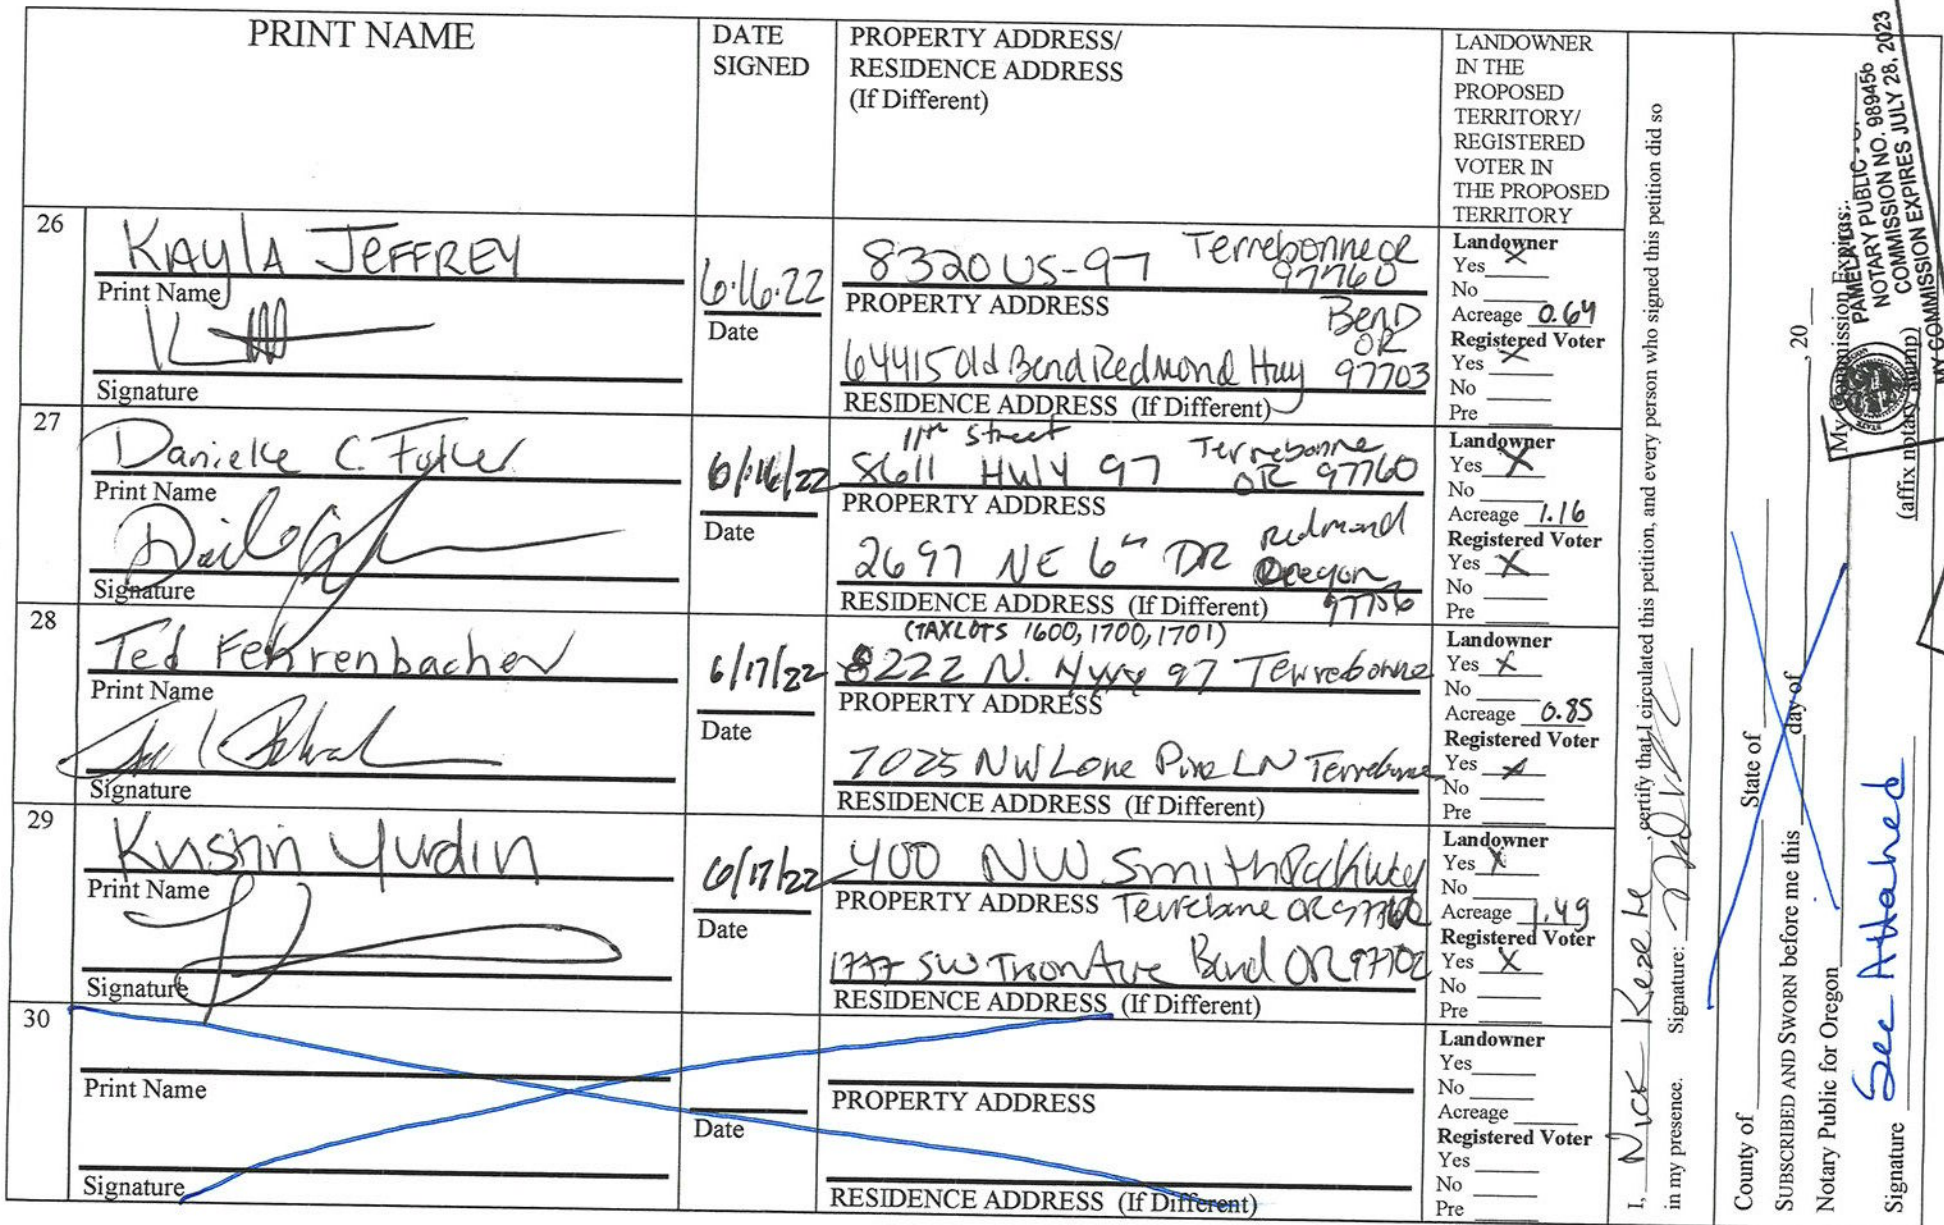 PRINT NAME
DATE
SIGNED
PROPERTY ADDRESS/
RESIDENCE ADDRESS
(If Different)
LANDOWNER
IN THE
PROPOSED
TERRITORY/
REGISTERED
VOTER IN
THE PROPOSED
TERRITORY
26
KAYLA JEFFREY
Print Name
Signature
6.16.22
Date
8320 US-97 Terrebonne OR
97760
PROPERTY ADDRESS
Bend
OR
64415 Old Bend Redmond Hwy 97703
RESIDENCE ADDRESS (If Different)
Landowner
Yes X
No
Acreage 0.64
Registered Voter
Yes X
No
Pre
27
Print Name
Signature
6/16/22
Date
11th Street
8611 HWY 97 Terrebonne
OR 97760
PROPERTY ADDRESS
2697 NE 6th DR Redmond
Oregon
97756
RESIDENCE ADDRESS (If Different)
Landowner
Yes X
No
Acreage 1.16
Registered Voter
Yes X
No
Pre
28
Ted Fehrenbacher
Print Name
Signature
6/17/22
Date
(TAXLOTS 1600, 1700, 1701)
8222 N. Hwy 97 Terrebonne
PROPERTY ADDRESS
7025 NW Lone Pine LN Terrebonne
RESIDENCE ADDRESS (If Different)
Landowner
Yes X
No
Acreage 0.85
Registered Voter
Yes X
No
Pre
29
Kristin Yurdin
Print Name
Signature
6/17/22
Date
400 NW Smith
PROPERTY ADDRESS
OR 97760
SW Ave Bend OR 97702
RESIDENCE ADDRESS (If Different)
Landowner
Yes X
No
Acreage 1.49
Registered Voter
Yes X
No
Pre
30
Print Name
Signature
Date
PROPERTY ADDRESS
RESIDENCE ADDRESS (If Different)
Landowner
Yes
No
Acreage
Registered Voter
Yes
No
Pre
I, Nick, certify that I circulated this petition, and every person who signed this petition did so
in my presence. Signature:
County of State of
SUBSCRIBED AND SWORN before me this day of , 20
Notary Public for Oregon
My Commission Expires:
Signature See Attached
(affix notary stamp)
NOTARY PUBLIC
COMMISSION NO. 989456
MY COMMISSION EXPIRES JULY 28, 2023